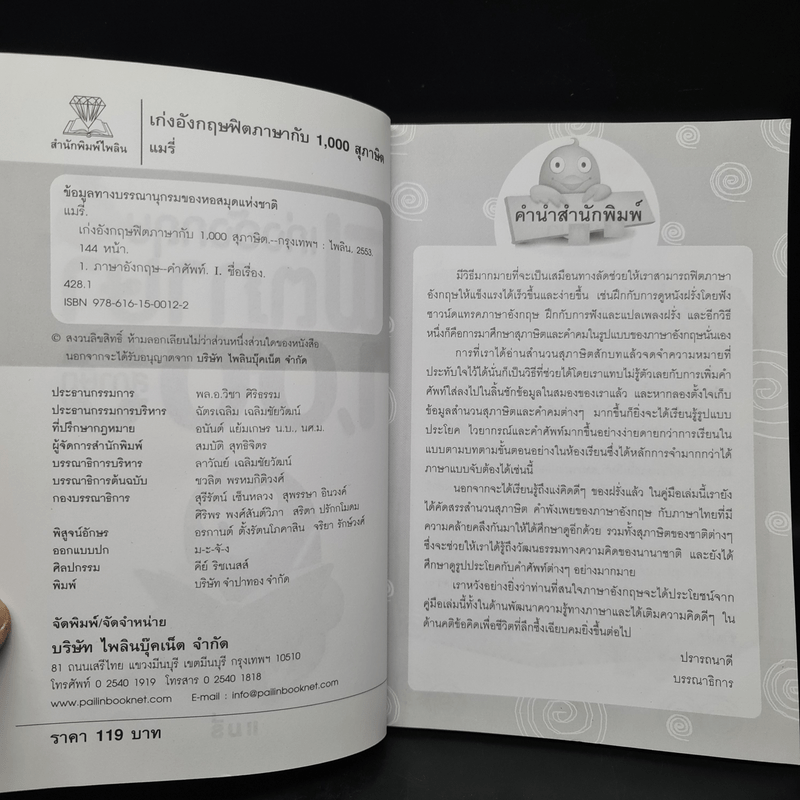 สำนักพิมพ์ไพลิน
เก่งอังกฤษฟิตภาษากับ 1,000 สุภาษิต
แมรี่
ข้อมูลทางบรรณานุกรมของหอสมุดแห่งชาติ
แมรี่.
เก่งอังกฤษฟิตภาษากับ 1,000 สุภาษิต.--กรุงเทพฯ : ไพลิน, 2553.
144 หน้า.
1. ภาษาอังกฤษ--คำศัพท์. I. ชื่อเรื่อง.
428.1
ISBN 978-616-15-0012-2
© สงวนลิขสิทธิ์ ห้ามลอกเลียนไม่ว่าส่วนหนึ่งส่วนใดของหนังสือ
นอกจากจะได้รับอนุญาตจาก บริษัท ไพลินบุ๊คเน็ต จำกัด
ประธานกรรมการ พล.อ.วิชา ศิริธรรม
ประธานกรรมการบริหาร ฉัตรเฉลิม เฉลิมชัยวัฒน์
ที่ปรึกษากฎหมาย อนันต์ แย้มเกษร น.บ., นศ.ม.
ผู้จัดการสำนักพิมพ์ สมบัติ สุทธิจิตร
บรรณาธิการบริหาร ลาวัณย์ เฉลิมชัยวัฒน์
บรรณาธิการต้นฉบับ ชวลิต พรหมกิติวงศ์
กองบรรณาธิการ สุรีรัตน์ เซ็นหลวง สุพรรษา อินวงค์
ศิริพร พงศ์สันต์วิภา สริตา ปรักกโมดม
พิสูจน์อักษร อรกานต์ ตั้งรัตนโภคาสิน จริยา รักษ์วงศ์
ออกแบบปก ม-ะ-จั-ง
ศิลปกรรม คีย์ ริชเนสส์
พิมพ์ บริษัท จำปาทอง จำกัด
จัดพิมพ์/จัดจำหน่าย
บริษัท ไพลินบุ๊คเน็ต จำกัด
81 ถนนเสรีไทย แขวงมีนบุรี เขตมีนบุรี กรุงเทพฯ 10510
โทรศัพท์ 0 2540 1919 โทรสาร 0 2540 1818
www.pailinbooknet.com E-mail : info@pailinbooknet.com
ราคา 119 บาท
คำนำสำนักพิมพ์
มีวิธีมากมายที่จะเป็นเสมือนทางลัดช่วยให้เราสามารถฟิตภาษา
อังกฤษให้แข็งแรงได้เร็วขึ้นและง่ายขึ้น เช่นฝึกกับการดูหนังฝรั่งโดยฟัง
ซาวน์ดแทรคภาษาอังกฤษ ฝึกกับการฟังและแปลเพลงฝรั่ง และอีกวิธี
หนึ่งก็คือการมาศึกษาสุภาษิตและคำคมในรูปแบบของภาษาอังกฤษนั่นเอง
การที่เราได้อ่านสำนวนสุภาษิตสักบทแล้วจดจำความหมายที่
ประทับใจไว้ได้นั่นก็เป็นวิธีที่ช่วยได้โดยเราแทบไม่รู้ตัวเลยกับการเพิ่มคำ
ศัพท์ใส่ลงไปในลิ้นชักข้อมูลในสมองของเราแล้ว และหากลองตั้งใจเก็บ
ข้อมูลสำนวนสุภาษิตและคำคมต่างๆ มากขึ้นก็ยิ่งจะได้เรียนรู้รูปแบบ
ประโยค ไวยากรณ์และคำศัพท์มากขึ้นอย่างง่ายดายกว่าการเรียนใน
แบบตามบทตามขั้นตอนอย่างในห้องเรียนซึ่งได้หลักการจำมากกว่าได้
ภาษาแบบจับต้องได้เช่นนี้
นอกจากจะได้เรียนรู้ถึงแง่คิดดีๆ ของฝรั่งแล้ว ในคู่มือเล่มนี้เรายัง
ได้คัดสรรสำนวนสุภาษิต คำพังเพยของภาษาอังกฤษ กับภาษาไทยที่มี
ความคล้ายคลึงกันมาให้ได้ศึกษาดูอีกด้วย รวมทั้งสุภาษิตของชาติต่างๆ
ซึ่งจะช่วยให้เราได้รู้ถึงวัฒนธรรมทางความคิดของนานาชาติ และยังได้
ศึกษาดูรูปประโยคกับคำศัพท์ต่างๆ อย่างมากมาย
เราหวังอย่างยิ่งว่าท่านที่สนใจภาษาอังกฤษจะได้ประโยชน์จาก
คู่มือเล่มนี้ทั้งในด้านพัฒนาความรู้ทางภาษาและได้เติมความคิดดีๆ ใน
ด้านคติข้อคิดเพื่อชีวิตที่ลึกซึ้งเฉียบคมยิ่งขึ้นต่อไป
ปรารถนาดี
บรรณาธิการ